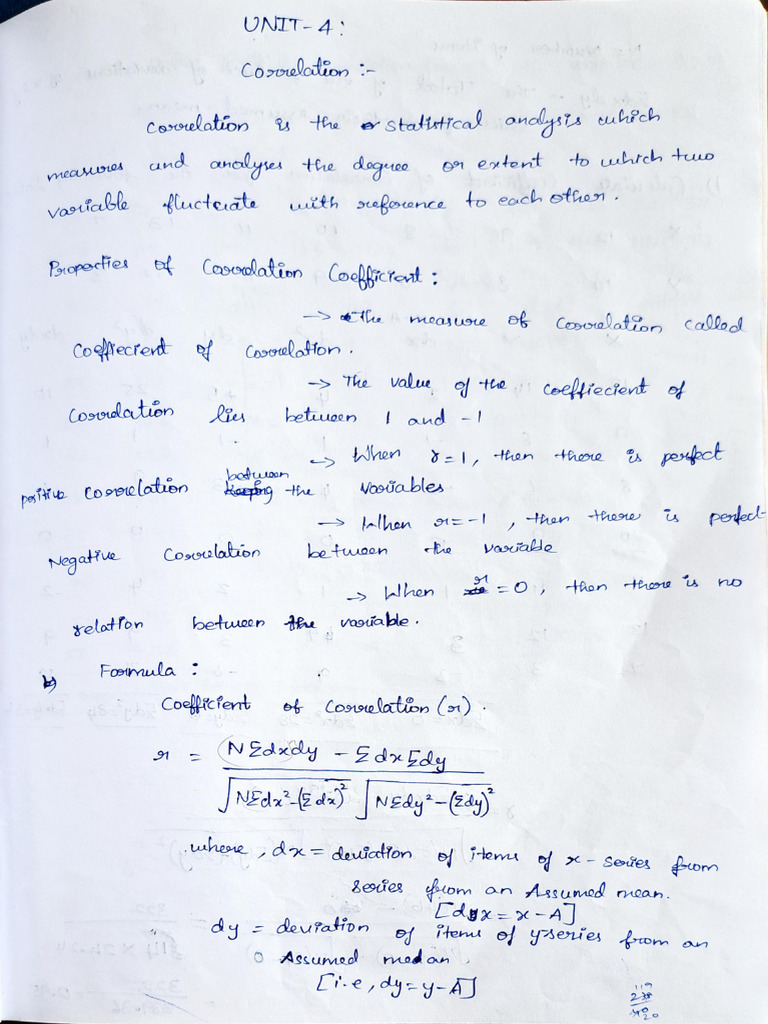 UNIT-4:
Correlation :-
Correlation is the statistical analysis which
measures and analyses the degree or extent to which two
variable fluctuate with reference to each other.
Properties of Correlation Coefficient :
→ The measure of correlation called
Coeffiecient of correlation.
→ The value of the coeffiecient of
correlation lies between 1 and -1
→ When r=1, then there is perfect
positive correlation between the variables
→ When r=-1, then there is perfect
Negative correlation between the variable
→ When r=0, then there is no
relation between the variable.
Formula :
Coefficient of correlation (r).
r = (NΣdxdy - Σdx Σdy) / (√(NΣdx²-(Σdx)²) √(NΣdy²-(Σdy)²))
where, dx = deviation of items of x-series from
series from an Assumed mean.
[dx = x-A]
dy = deviation of items of y-series from an
Assumed medan
[i.e, dy=y-A]